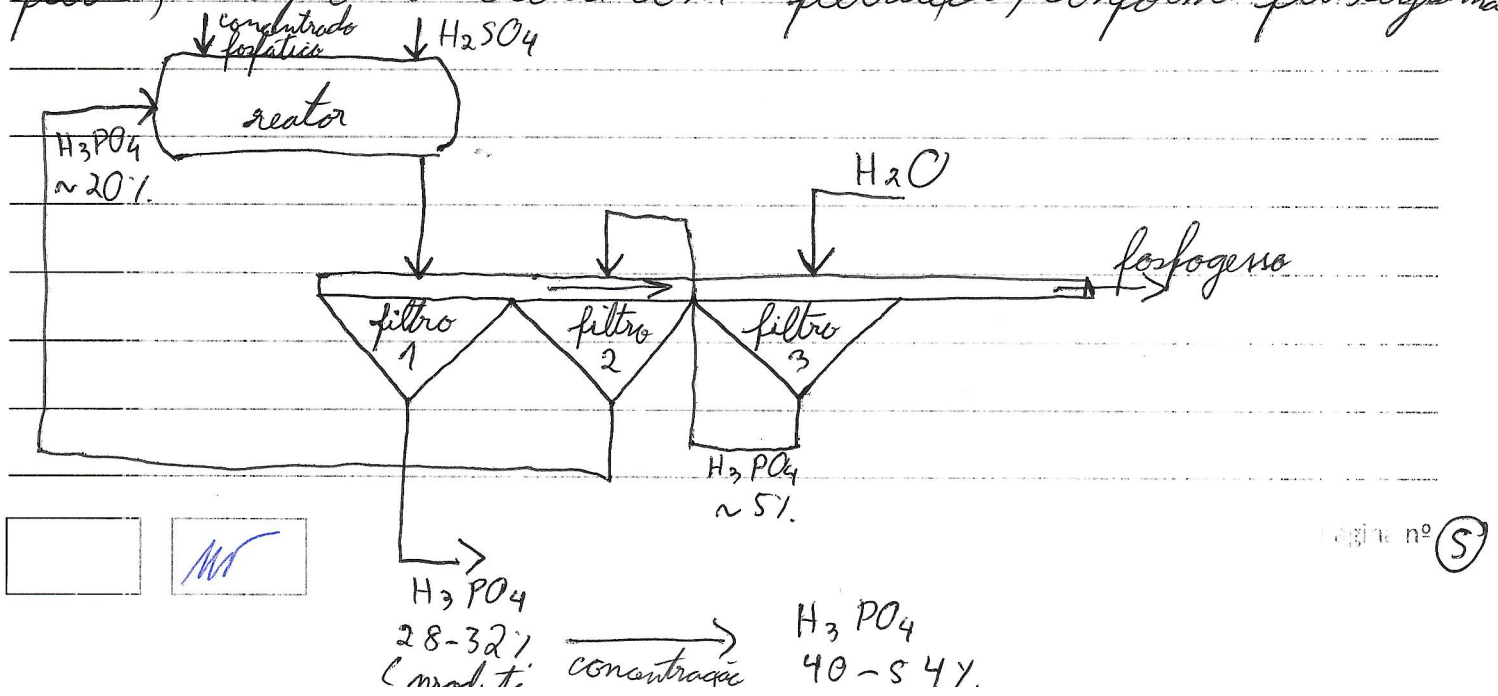 conform
concentrado
fosfático
H₂SO₄
reator
H₃PO₄
~20%.
H₂O
fosfogesso
filtro
1
filtro
2
filtro
3
H₃PO₄
~5%.
Página nº 5
H₃PO₄
28-32%
concentração
H₃PO₄
40-54%.